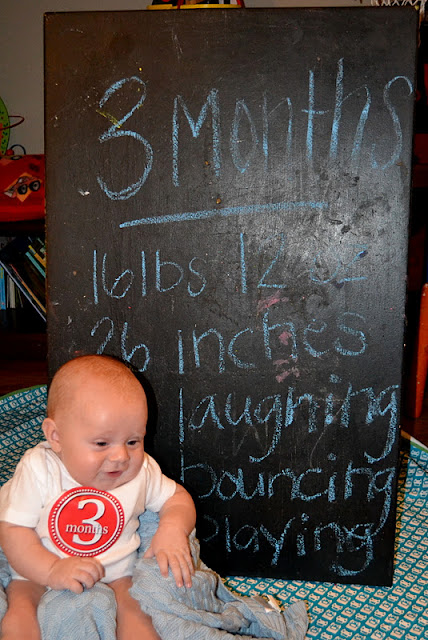 3 Months
16 lbs 12 oz
26 inches
laughing
bouncing
playing
3
months